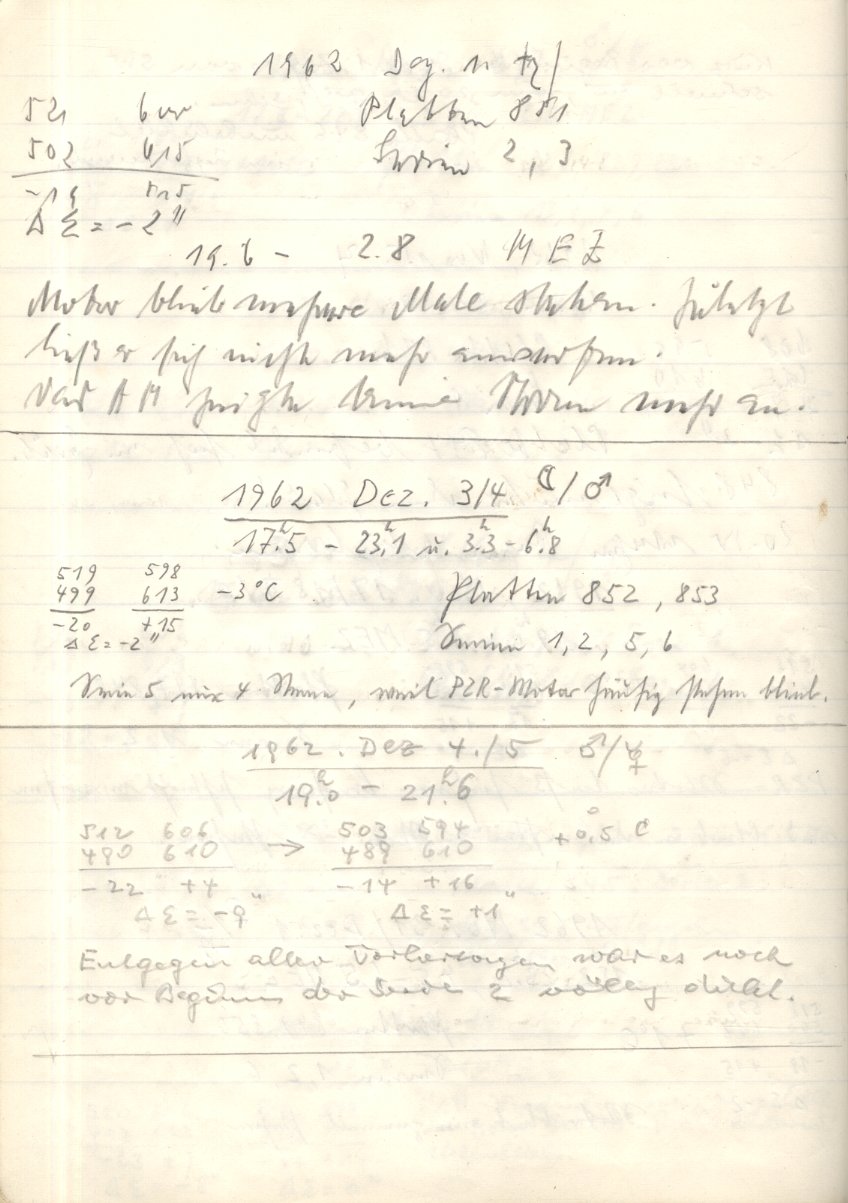 1962 Dez. 1.
521 600 Platten 851
502 615 Serien 2, 3
-19 +15
Δ Σ = -2"
19.6 - 2.8 MEZ
Motor blieb mehrere Male stehen. Zuletzt
ließ er sich nicht mehr anwerfen.
Das AM zeigte keine Strom mehr an.
1962 Dez. 3/4 ☾/♂
17ʰ.5 - 23ʰ.1 u. 3ʰ.3 - 6ʰ.8
519 598
499 613 -3°C Platten 852, 853
-20 +15
Δ Σ = -2" Serien 1, 2, 5, 6
Serie 5 nur 4 Sterne, weil PZR-Motor häufig stehen blieb.
1962. Dez 4./5 ♂/☿
19ʰ.0 - 21ʰ.6
512 606 503 594 +0,5°C
490 610 → 489 610
-22 +4 -14 +16
Δ Σ = -9" Δ Σ = +1"
Entgegen allen Vorhersagen war es noch
vor Beginn der Serie 2 völlig dicht.